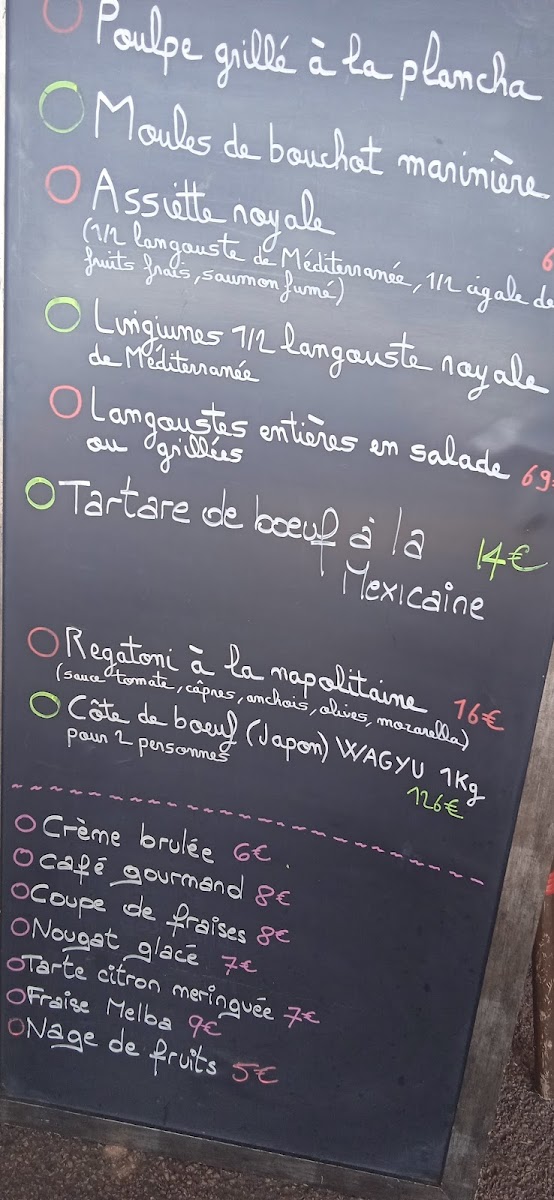 Poulpe grillé à la plancha
Moules de bouchot marinière
Assiette royale
(1/2 langouste de Méditerranée, 1/2 cigale de
fruits frais, saumon fumé)
Linguines 1/2 langouste royale
de Méditerranée
Langoustes entières en salade 69
ou grillées
Tartare de boeuf à la 14€
Mexicaine
Regatoni à la napolitaine 16€
(sauce tomate, câpres, anchois, olives, mozarella)
Côte de boeuf (Japon) WAGYU 1Kg
pour 2 personnes 126€
Crème brulée 6€
Café gourmand 8€
Coupe de fraises 8€
Nougat glacé 7€
Tarte citron meringuée 7€
Fraise Melba 9€
Nage de fruits 5€